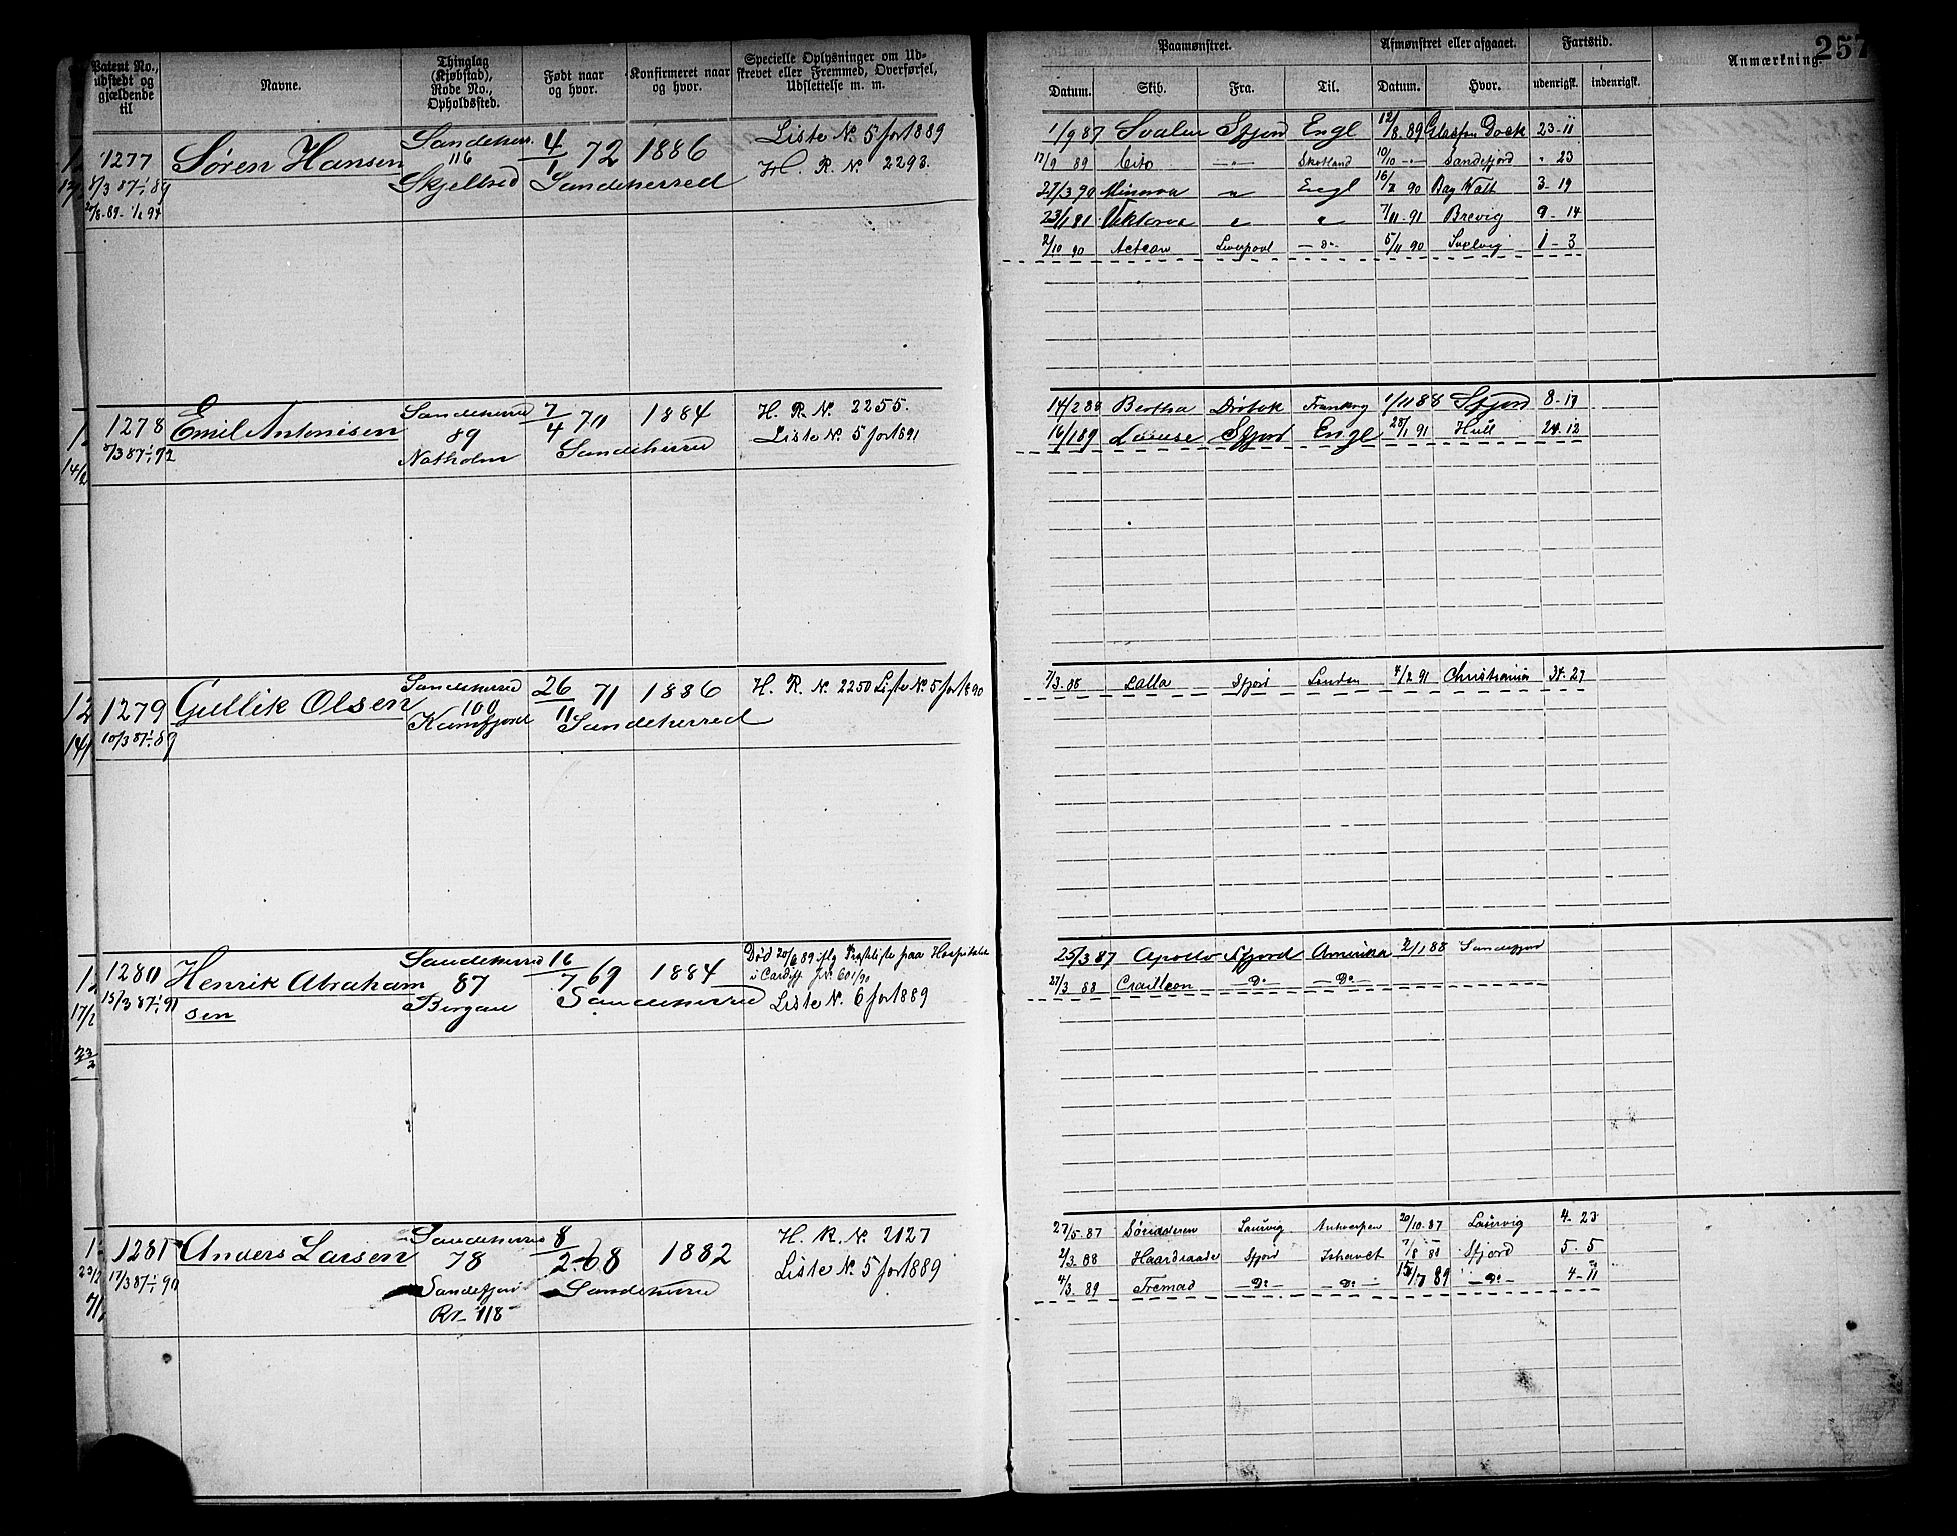 257
Patent No., udstedt og gjældende til
Navne.
Thinglag (Kjøbstad), Rode No., Opholdssted.
Født naar og hvor.
Konfirmeret naar og hvor.
Specielle Oplysninger om Udskrevet eller Fremmed, Overførsel, Udslettelse m. m.
Paamønstret.
Afmønstret eller afgaaet.
Fartstid.
Anmærkning.
Datum. Skib. Fra. Til. Datum. Hvor. udenrigsk. indenrigsk.
1277 Søren Hansen Sandeherr. 4/1 72 1886 Liste N. 5 for 1889
116
Sandeherred H. R. N. 2293.
1/9 87 Svalen Sfjord Engl 12/8. 89 Dock 23-11
17/9 89 Cito -"- Skotland 10/10 -"- Sandefjord " 23
27/3 90 Minerva " Engl 90 3-19
" " 7/11-91 Brevig 9-14
2/10 90 Actean Liverpool -D- 5/11 90 Svelvig 1-3
1278 Emil Antonisen Sandeherred 7/4 70 1884 H. R. N. 2255.
7/3 87-1/1 92 89 Sandeherred Liste N. 5 for 1891
Natholm
14/2 88 Bertha Drøbak Frankrg 1/11 88 Sfjord 8-17
16/1 89 Sfjord Engl 28/1 91 Hull 24-12
1279 Gullik Olsen Sandeherred 26/11 71 1886 H. R. N. 2250 Liste N. 5 for 1890
10/3 87-1/1 89 100 Sandeherred
Kamfjord
7/3. 88 Lalla Sfjord London 4/2 91 Christiania 34-27
1280 Henrik Abrahamsen Sandeherred 16/7 69 1884 Død 20/6 89 iflg paa Hospitalet
i Cardiff JN. 601/90
15/3 87-1/1 91 87 Sandeherred Liste N. 6 for 1889
Bergan
25/3 87 Apollo Sfjord Amerika 2/1 88 Sandefjord
27/3 88 -D°- -D°-
1281 Anders Larsen Sandeherred 8/2-68 1882 H. R. N. 2127
17/3 87-1/1 90 78 Sandeherred Liste N. 5 for 1889
Sandefjord
R. 118
27/5. 87 Laurvig Antwerpen 20/10. 87 Laurvig 4-23
2/3. 88 Haardraade Sfjord Ishavet 7/8 88 Sfjord 5-5
4/3. 89 Fremad -D°- -D°- 89 -D°- 4-11